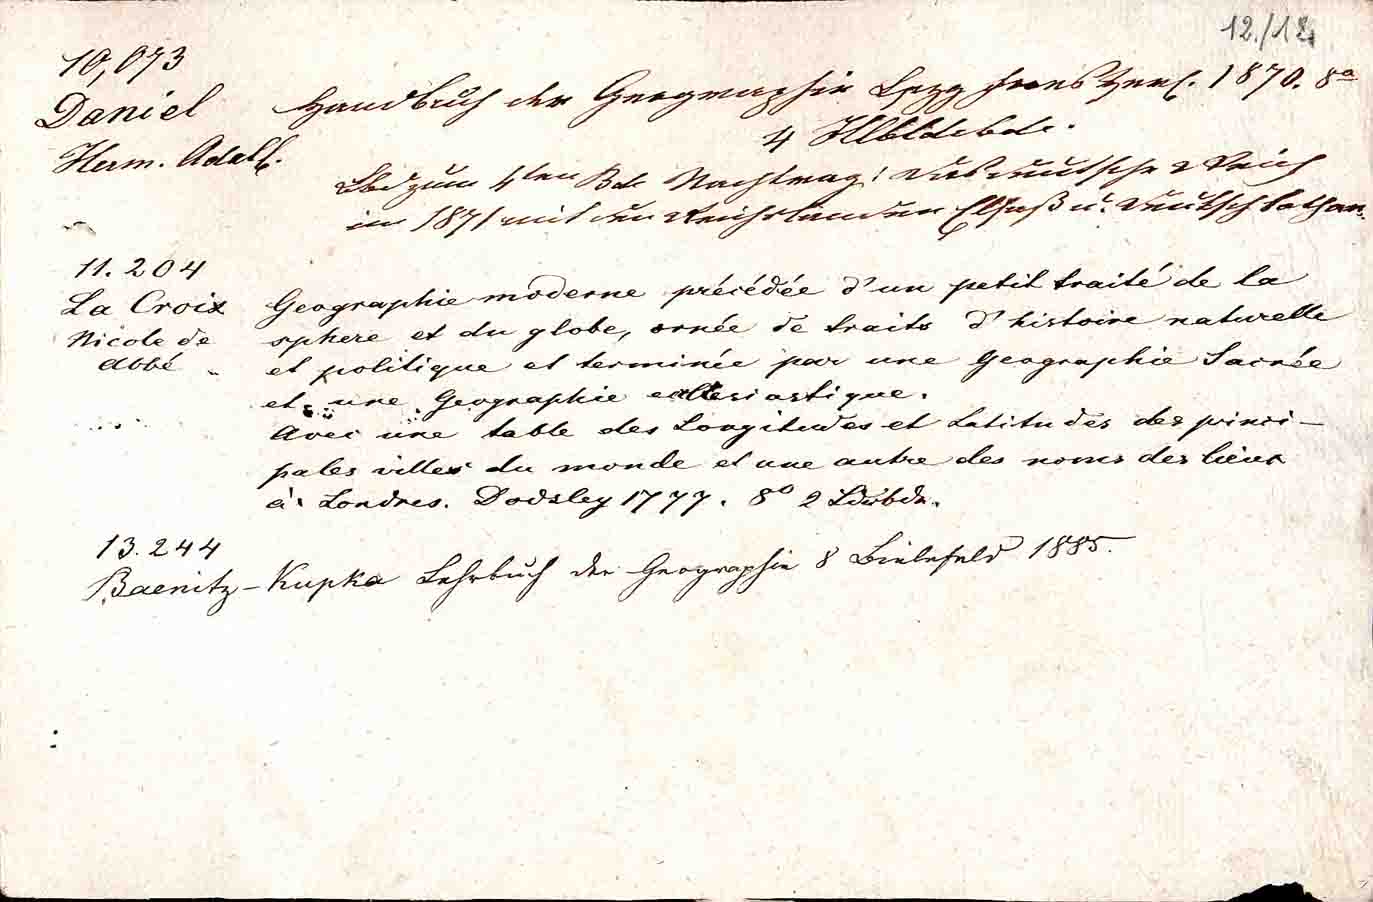 12./12.
10,073
Daniel Handbuch der Geographie Lpzg Fues Verl. 1870. 8o
Herm. Adalb. 4 Hlbldrbde.
zum 4ten Bde Nachtrag: Das deutsche Reich
in 1871 mit den Reichslanden Elsaß u. Deutsch Lothar.
11.204
La Croix Geographie moderne précédée d'un petit traité de la
Nicole de sphere et du globe, ornée de traits d'histoire naturelle
Abbé et politique et terminée par une Geographie Sacrée
et une Geographie ecclesiastique.
Avec une table des Longitudes et Latitudes des princi-
pales villes du monde et une autre des noms des lieux
à Londres. Dodsley 1777. 8o 2 Ldrbde.
13.244
Baenitz-Kupka Lehrbuch der Geographie 8 Bielefeld 1885.